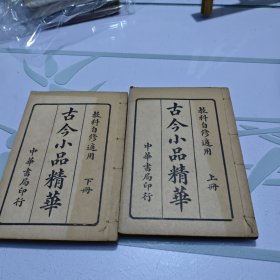 教科自修適用
古今小品精華
下冊
中華書局印行
教科自修適用
古今小品精華
上冊
中華書局印行